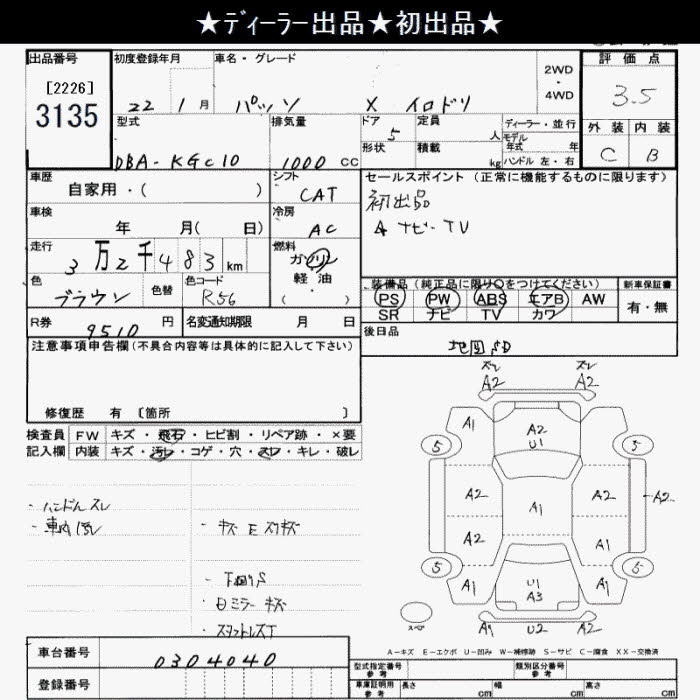 ★ディーラー出品★初出品★
出品番号 初度登録年月 車名・グレード 2WD・4WD 評価点
[2226]
3135
22 1月 パッソ X イロドリ 3.5
型式 排気量 ドア 定員 人 ディーラー・並行 外装 内装
5 形状 積載 kg モデル年式 年 ハンドル 左・右
DBA-KGC10 1000 CC C B
車歴 シフト セールスポイント (正常に機能するものに限ります)
自家用・( ) CAT 初出品
車検 冷房
年 月( 日) AC ナビ-TV
走行 燃料
3万2千483km ガソリン
軽・油
( )
色 色替 色コード 装備品(純正品に限り○をつけてください) 新車保証書
ブラウン R56 PS PW ABS エアB AW 有・無
SR ナビ TV カワ
R券 9510 円 名変通知期限 月 日 後日品
注意事項申告欄(不具合内容等は具体的に記入して下さい) 地図SD
修復歴 有 〔箇所 〕
検査員 FW キズ・飛石・ヒビ割・リペア跡・×要
記入欄 内装 キズ・汚レ・コゲ・穴・スレ・キレ・破レ
・ハンドルスレ
・車内汚レ ・キズ E スリキズ
・下廻りS
・Dミラーキズ
・スタットレスT
スレ スレ
A2 A2
A1 A2 U1 A1
5 5
A2 A1 A2 A2
A2 A1
5 5
A1 U1 A3 A1
スペア A1 U2 A2
A-キズ E-エクボ U-凹み W-補修跡 S-サビ C-腐食 XX-交換済
車台番号 0304040
登録番号
型式指定番号 参考 類別区分番号 参考
車庫証明用 参考 長さ cm 幅 cm 高さ cm